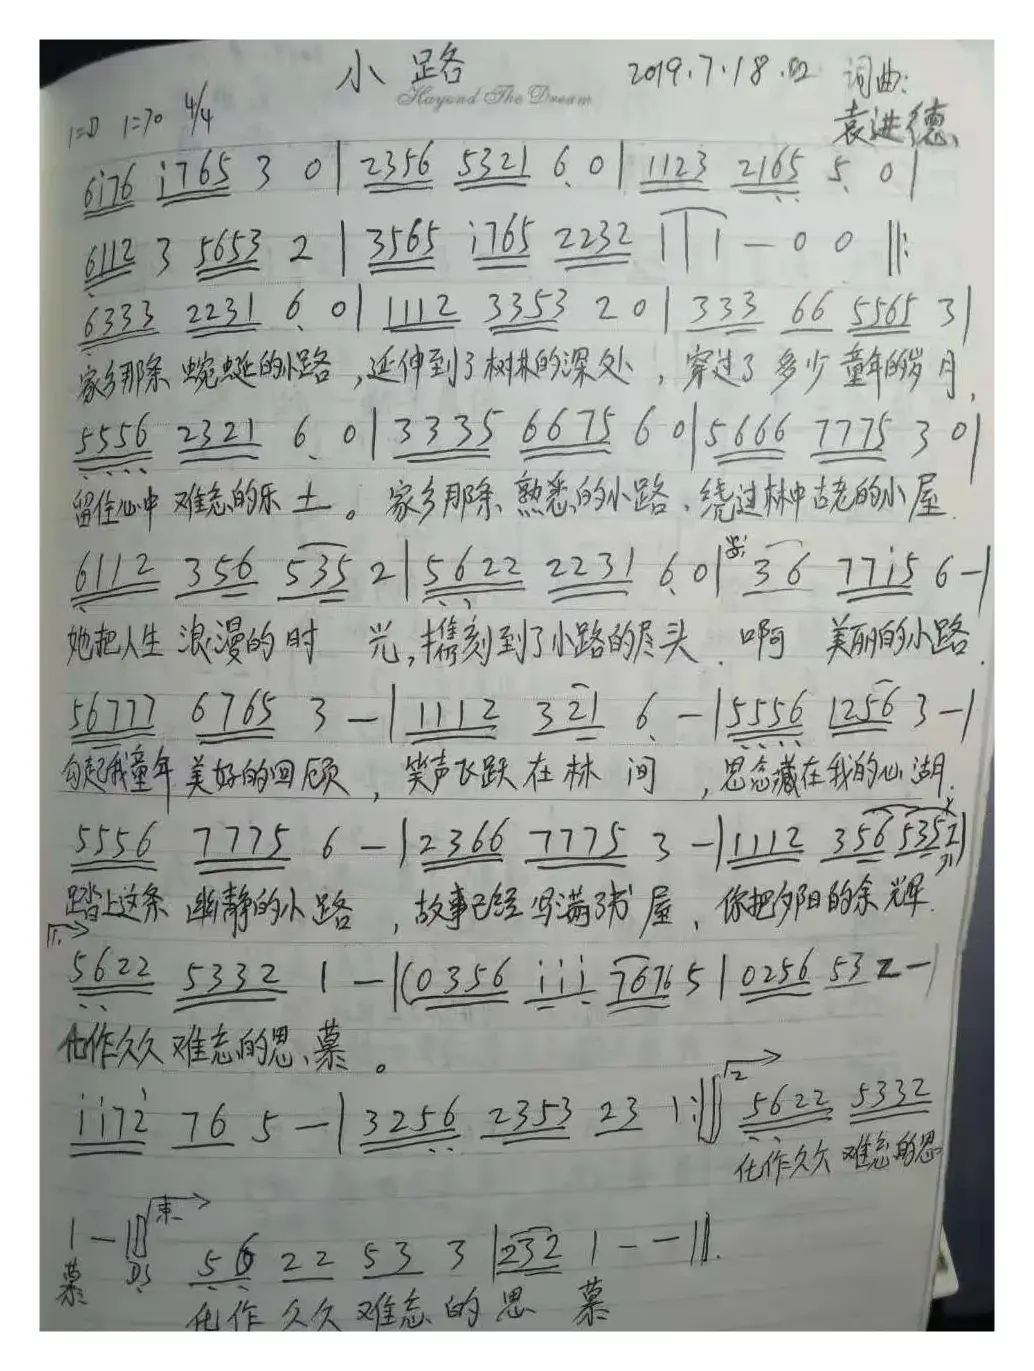 小路
Hayond The Dream
2019.7.18.
词曲:
袁进德
1=D 1=70 4/4
6i76 i765 3 0 | 2356 5321 6 0 | 1123 2165 5 0 |
6112 3 5653 2 | 3565 i765 2232 1 | 1 - 0 0 ‖:
6333 2231 6 0 | 1112 3353 2 0 | 333 66 5565 3 |
家乡那条 蜿蜒的小路 ,延伸到了树林的深处 , 穿过了 多少 童年的岁月,
5556 2321 6 0 | 3335 6675 6 0 | 5666 7775 3 0 |
留住心中 难忘的乐土。 家乡那条 熟悉的小路 、绕过林中古老的小屋.
6112 356 535 2 | 5622 2231 6 0 | 36 77i5 6 - |
她把人生 浪漫的时光, 携刻到了小路的尽头 . 啊 美丽的小路.
56777 6765 3 - | 1112 321 6 - | 5556 1256 3 - |
勾起我童年 美好的回顾 , 笑声飞跃在林间 , 思念藏在我的心湖.
5556 7775 6 - | 2366 7775 3 - | 1112 356 5352 |
踏上这条 幽静的小路 , 故事已经写满了书屋 , 你把夕阳的余辉.
1.
5622 5332 1 - | (0356 iii 7676 5 | 0256 53 2 - |
化作久久 难忘的思慕。
ii72 76 5 - | 3256 2353 23 1 :‖ 2 5622 5332
化作久久 难忘的思
1 - ‖ 束 56 22 53 3 | 232 1 - - ‖
慕 DS
化作 久久 难忘的思 慕